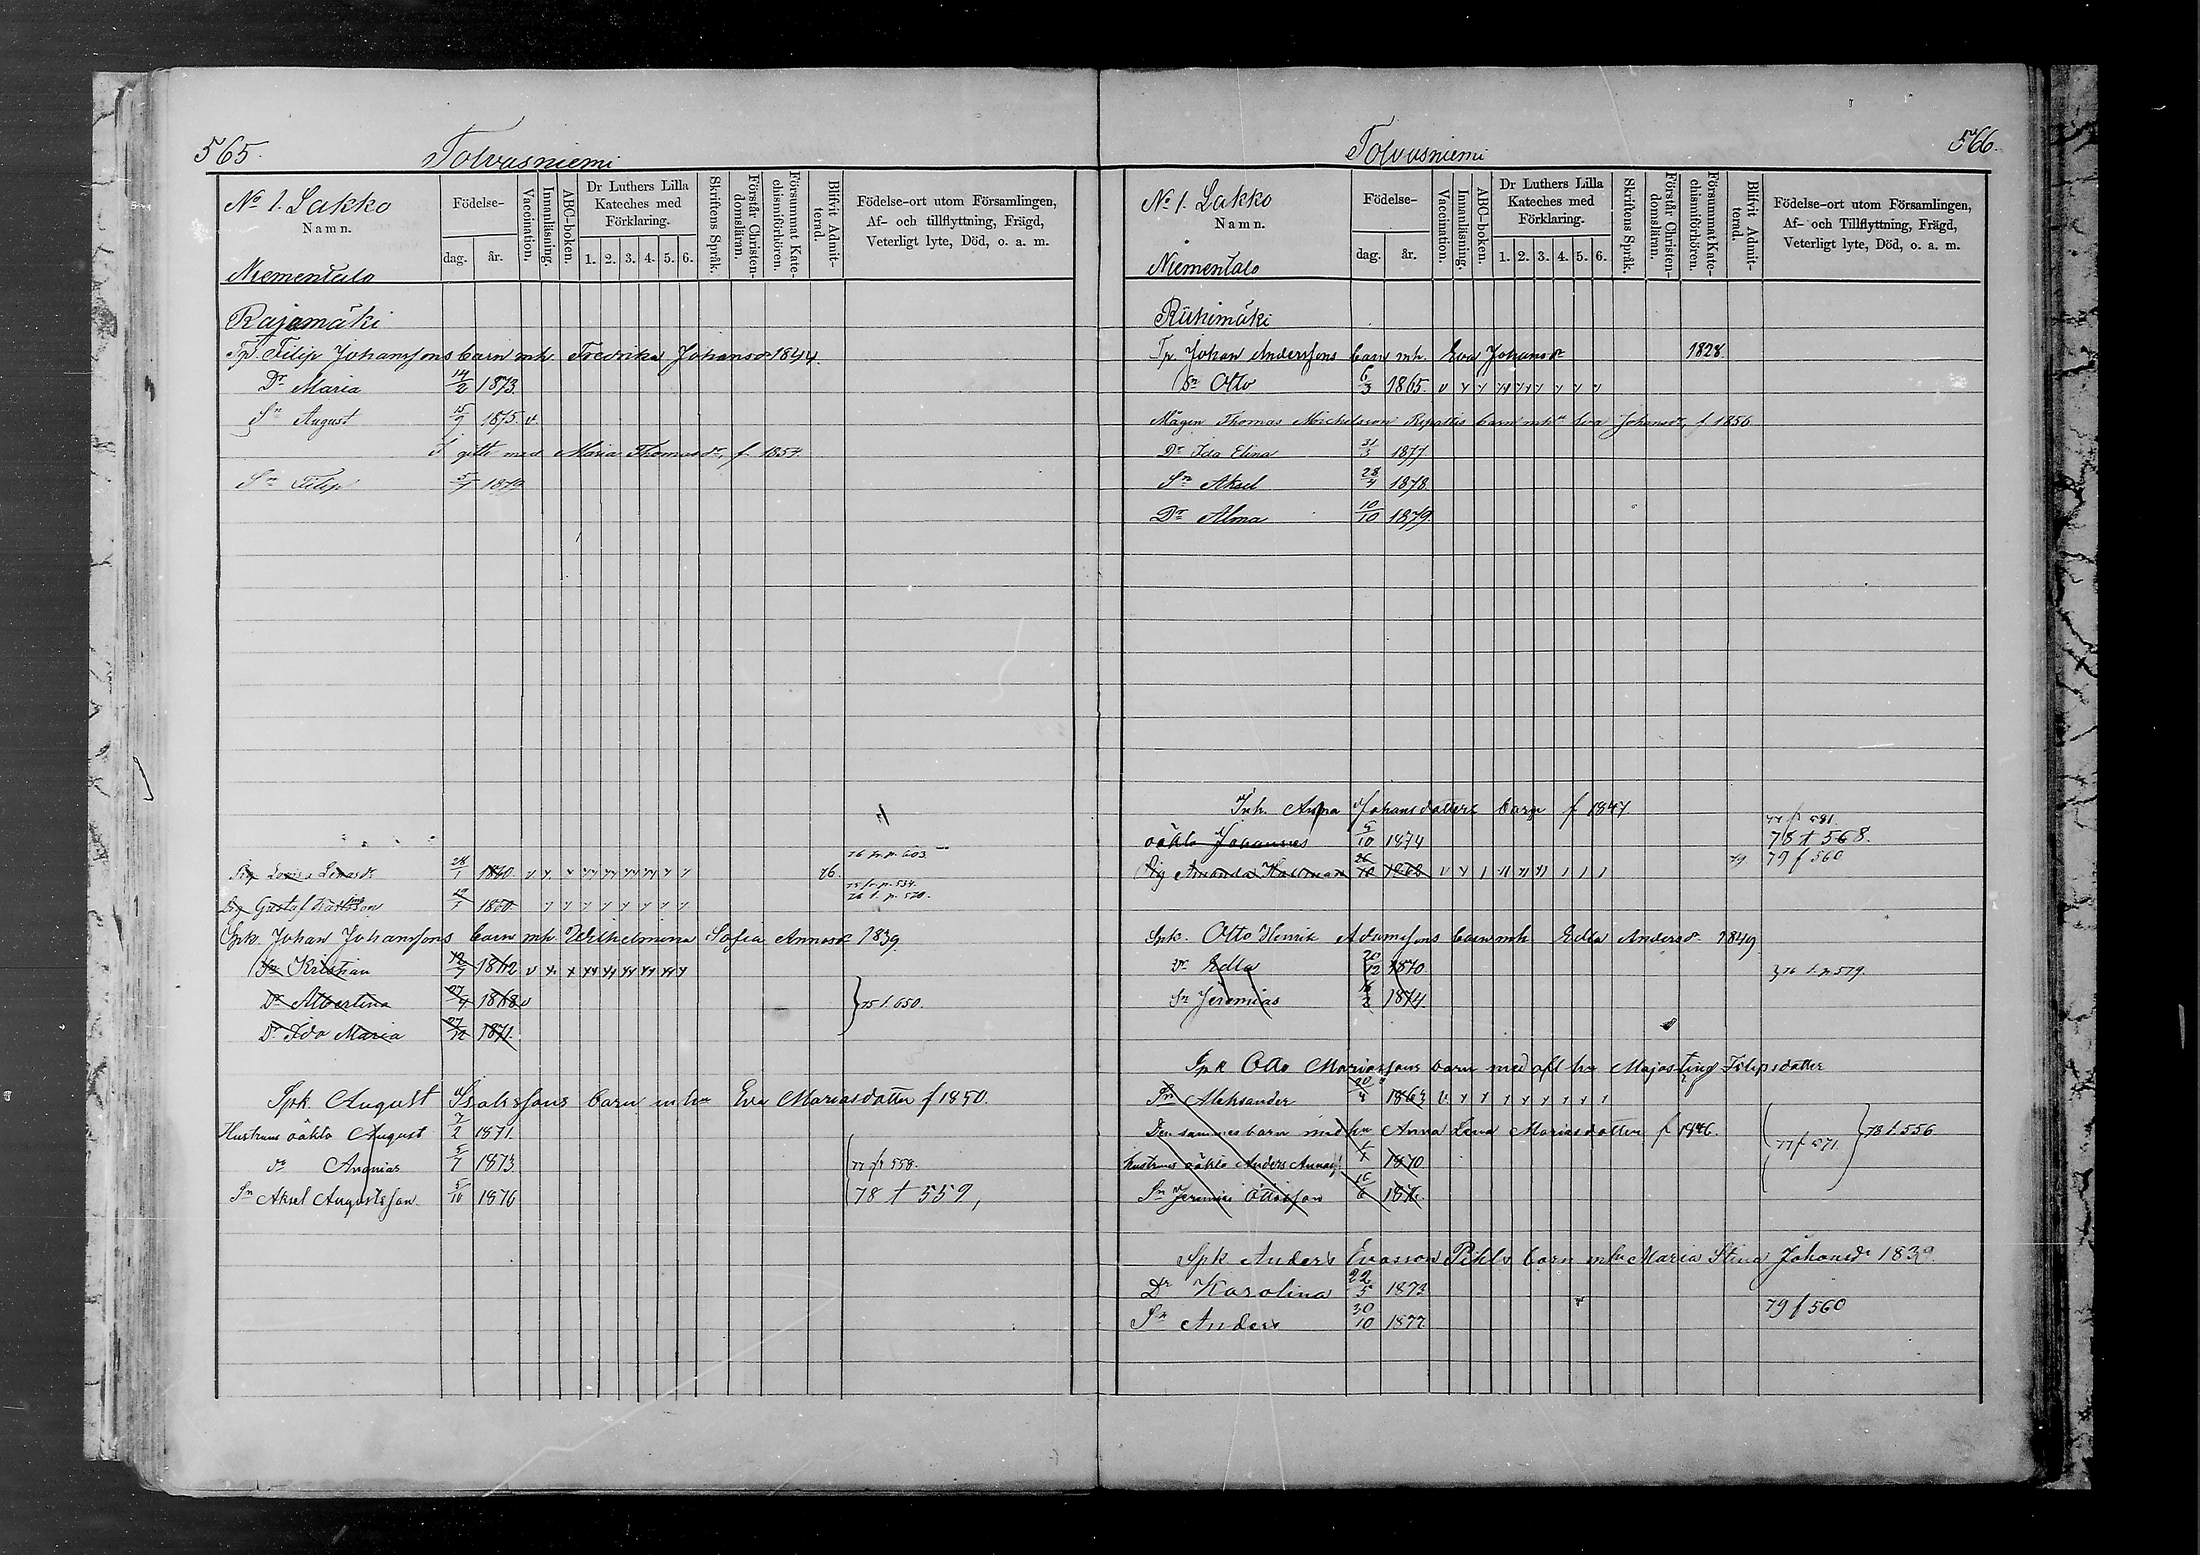 565.
Tolvasniemi
No 1. Lakko
Namn.
Niementalo
Födelse-
dag.
år.
Vaccination.
Innanläsning.
ABC-boken.
Dr Luthers Lilla
Kateches med
Förklaring.
1. 2. 3. 4. 5. 6.
Skriftens Språk.
Förstår Christen-
domsläran.
Försummat Kate-
chismiförhören.
Blifvit Admit-
terad.
Födelse-ort utom Församlingen,
Af- och tillflyttning, Frägd,
Veterligt lyte, Död, o. a. m.
Rajamäki
Tp. Filip Johanssons barn mh. Fredrika Johansdr 1844.
Dr Maria 14/2 1873.
Sn August 15/9 1875. v
gift med Maria Thomasdr, f. 1854.
Sn Filip 5/7
76 fr. p. 603.
Pig Lovisa 28/1 1860 76.
75 fr. p. 534.
Dg Gustaf 1860. 76 t. p. 520.
Spk. Johan Johanssons barn mh. Wilhelmina Sofia Annasdr 1839.
Sn Kristian 12/7 1862
Dr Albertina 27/4 1868 v 75 t. 650.
Dr Ida Maria 27/12 1871.
Spk. August Isakssons barn m hu Eva Mariasdotter f 1850.
Hustruns oäkta August 7/2 1871.
dr Ananias 5/7 1873 77 fr 558.
Sn Aksel Augustsson 5/10 1876 78 t 559,
566.
Tolvasniemi
No 1. Lakko
Namn.
Niementalo
Födelse-
dag.
år.
Vaccination.
Innanläsning.
ABC-boken.
Dr Luthers Lilla
Kateches med
Förklaring.
1. 2. 3. 4. 5. 6.
Skriftens Språk.
Förstår Christen-
domsläran.
Försummat Kate-
chismiförhören.
Blifvit Admit-
terad.
Födelse-ort utom Församlingen,
Af- och Tillflyttning, Frägd,
Veterligt lyte, Död, o. a. m.
Riihimäki
Tp. Johan Anderssons barn mh. Eva Johansdr 1828.
Sn Otto 6/3 1865.
Mågen Thomas Michelsson barn mh Eva Johansdr, f 1856
Dr Ida Elina 31/3 1877
Sn Aksel 28/4 1878.
Dr Alma 10/10 1879.
Inh. Anna Johansdotters barn f 1847.
77 fr 581.
oäkta Johannes 5/10 1874 78 t 568.
Pig Amanda Hallman 26/10 1862 79 79 f 560
Spk. Otto Henrik Adamssons barn mh Edla Andersdr. 1849
Dr Edla 20/12 1870. 76 t. p 579.
Sn Jeremias 16/2 1874.
Spk Otto Mariassons barn med afl hu Majastina Filipsdotter
Sn Aleksander 20/4 1863
Den sammes barn med hu Anna Lena Mariasdotter f 1846. 77 f 571. 78 t. 556.
hustruns oäkta Anders 1870
Sn Jeremias Ottosson 16/6 1876.
Spk Anders Evasson Pihls barn m hu Maria Stina Johansdr 1839.
Dr Karolina 22/5 1873
79 f 560
Sn Anders 30/10 1877